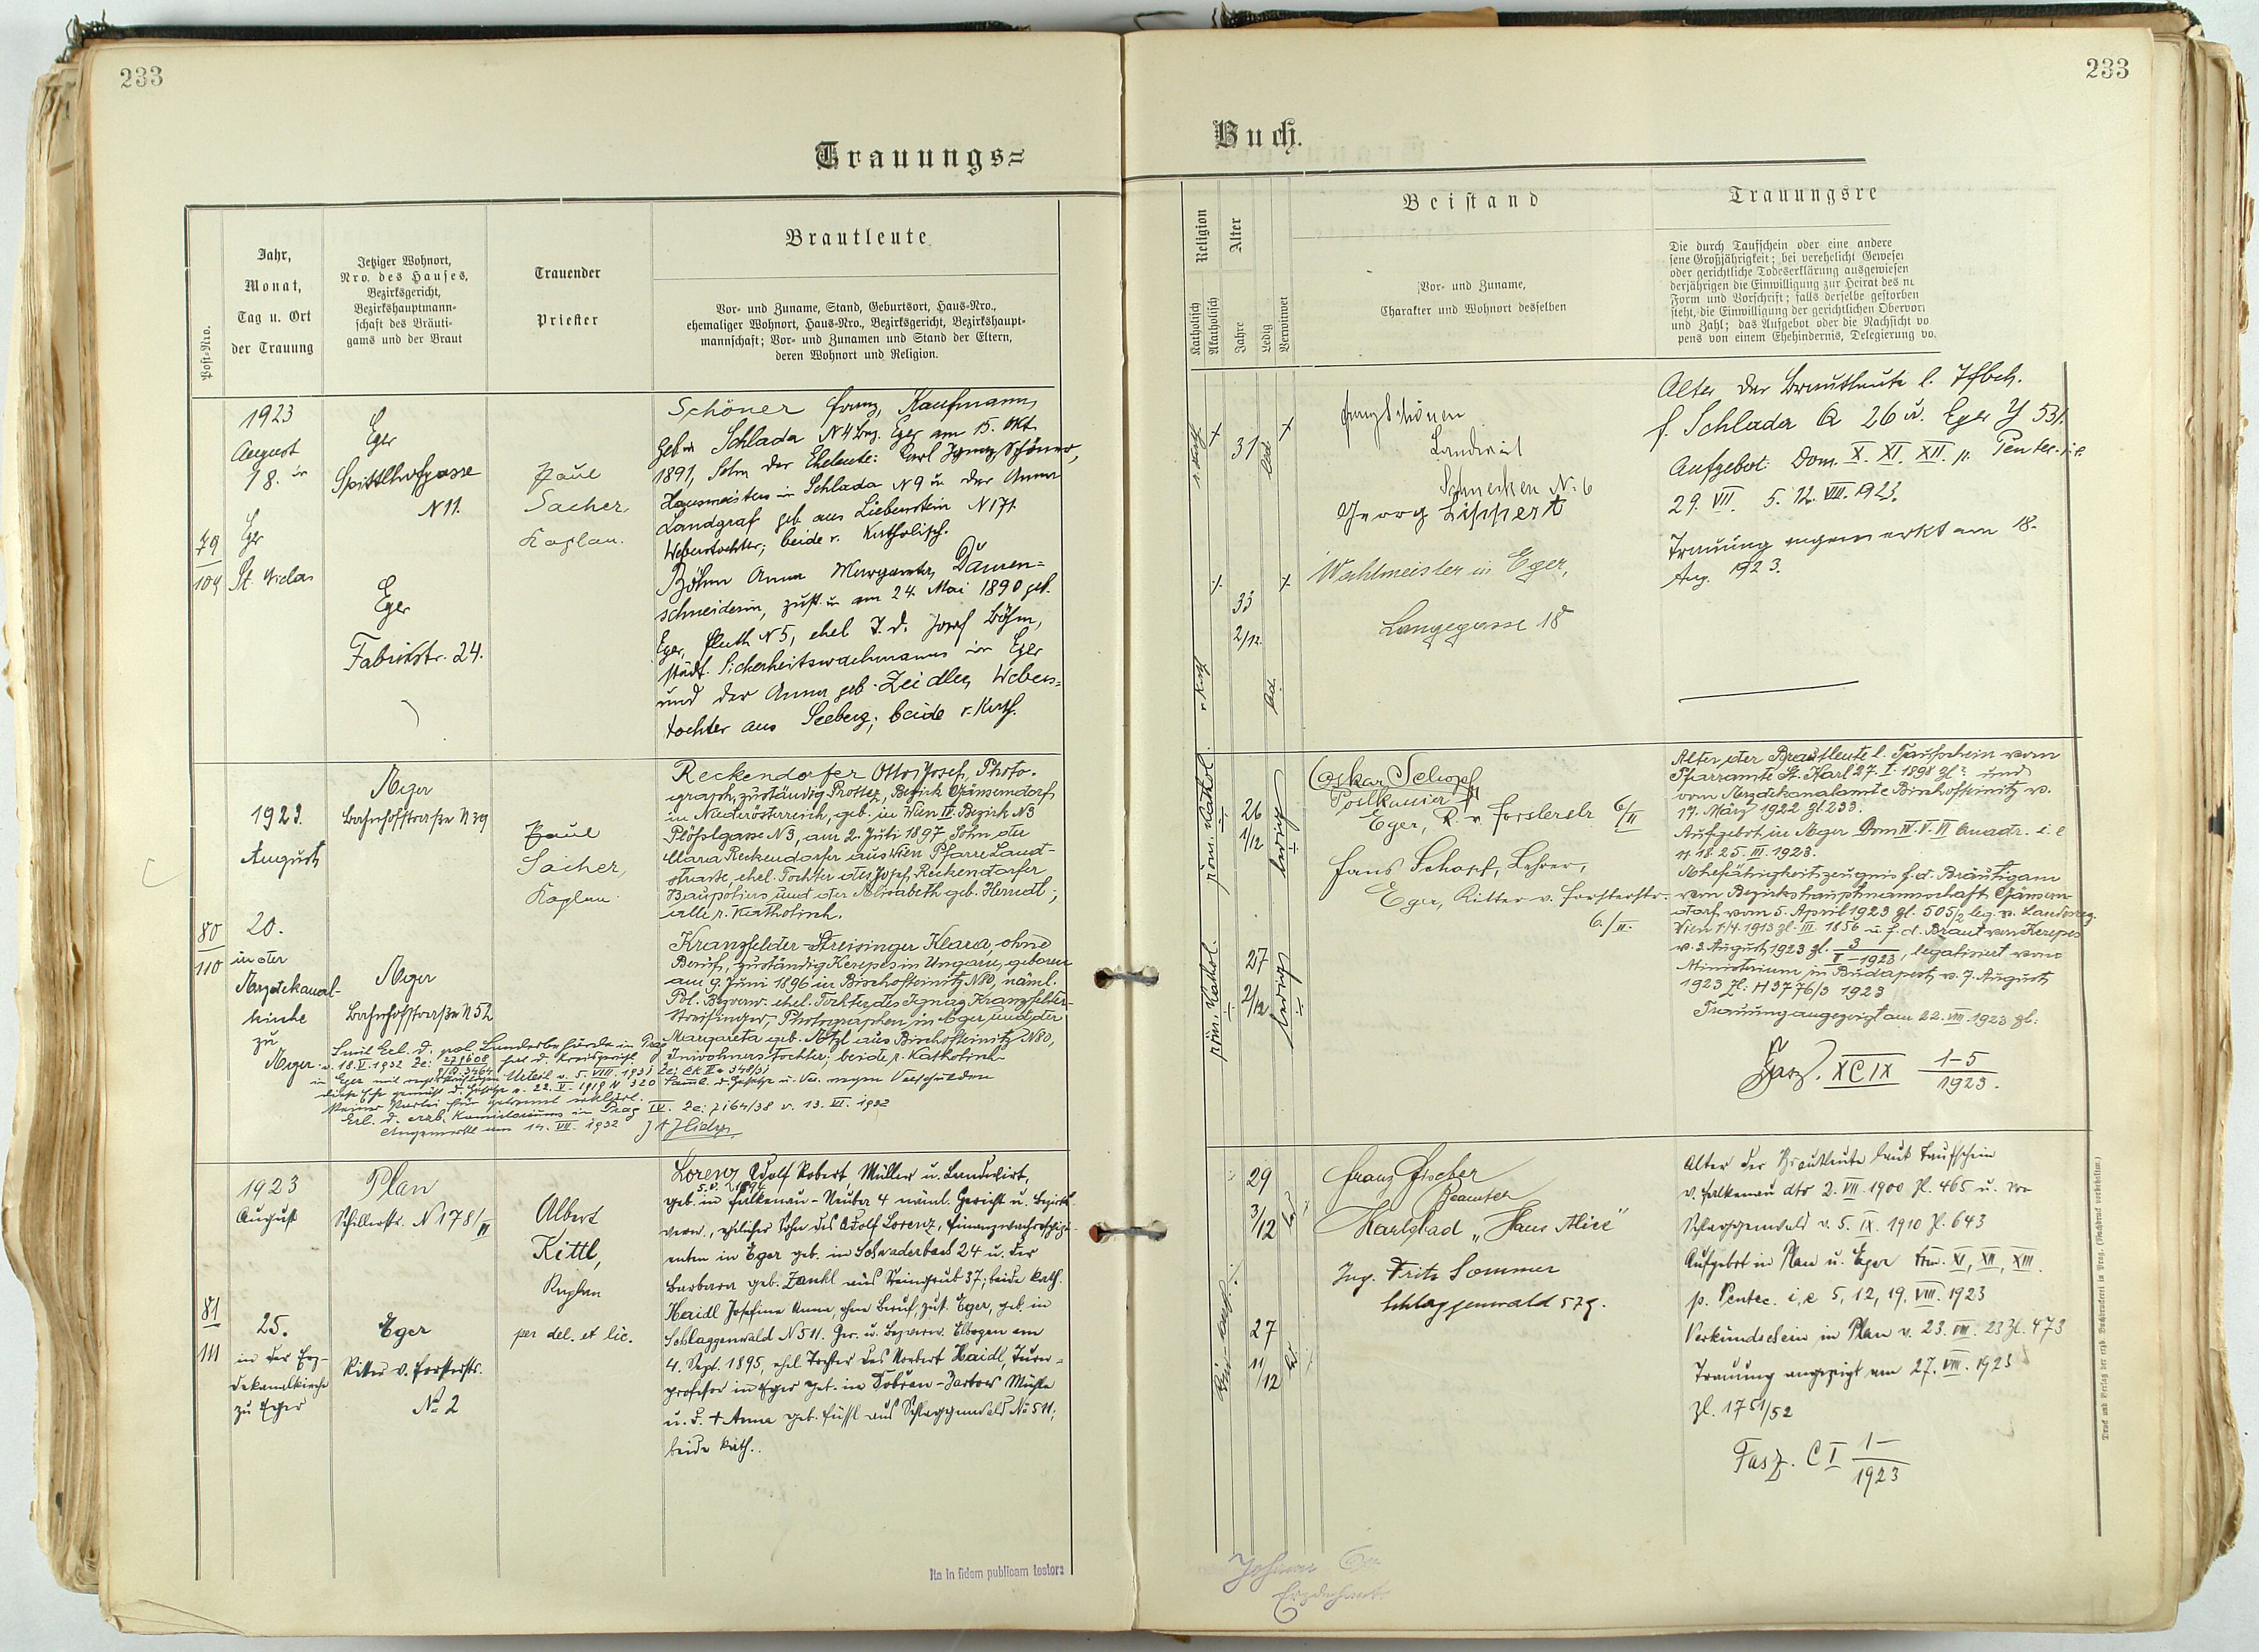 233
Trauungs=
Post=Nro.
Jahr,
Monat,
Tag u. Ort
der Trauung
Jetziger Wohnort,
Nro. des Hauses,
Bezirksgericht,
Bezirkshauptmann=
schaft des Bräuti=
gams und der Braut
Trauender
Priester
Brautleute
Vor= und Zuname, Stand, Geburtsort, Haus=Nro.,
ehemaliger Wohnort, Haus=Nro., Bezirksgericht, Bezirkshaupt=
mannschaft; Vor= und Zunamen und Stand der Eltern,
deren Wohnort und Religion.
79
109
1923
August
18. in
Eger
St. Niclas
Eger
Spittlhofgasse
N 11.
Eger
Fabrikstr. 24.
Paul
Sacher,
Kaplan.
Schöner Franz, Kaufmann,
geb in Schlada N 4 Bez. Eger am 15. Okt.
1891, Sohn der Eheleute: Karl Ignaz Schöner,
Hausmeisters in Schlada N 9 u. der Anna
Landgraf geb. aus Liebenstein N 171.
Weberstochter; beide r. katholisch.
Böhm Anna Margareta, Damen=
schneiderin, zust. u. am 24. Mai 1890 geb.
Eger, N 5, ehel. T. d. Josef Böhm,
städt. Sicherheitswachmanns in Eger
und der Anna geb. Zeidler, Webers=
tochter aus Seeberg; beide r. kath.
80
110
1923.
August
20.
in der
Erzdekanal-
kirche
zu
Eger.
Eger
Bahnhofstraße N 39
Eger
Bahnhofstraße N 52
Paul
Sacher,
Kaplan.
Reckendorfer Otto Josef, Photo-
graph, zuständig Prottes, Bezirk Gänserndorf
in Niederösterreich, geb. in Wien IV. Bezirk N 3
Plößlgasse N 3, am 2. Juli 1897 Sohn der
Maria Reckendorfer aus Wien Pfarre Land-
straße, ehel. Tochter des Josef Reckendorfer
Baupoliers und der Elisabeth geb. Herndl;
alle r. katholisch.
Kranzfelder-Streisinger Klara, ohne
Beruf, zuständig Kerepes in Ungarn, geboren
am 9. Juni 1896 in Bischofteinitz N 80, näml.
Pol. Bezverw. ehel. Tochter des Ignaz Kranzfelder-
Streisinger, Photographen in Eger und der
Margareta geb. Etzl aus Bischofteinitz N 80,
Inwohners Tochter; beide r. katholisch.
Laut Erl. d. pol. Landesbehörde in Prag
v. 18. V. 1932
in Eger mit Urteil v. 5. VIII. 1931 Zl: Ck II a 348/31
diese Ehe gemäß d. Gesetze v. 22. V. 1919 N 320 Samml. d. Gesetze u. Ver. wegen Verschulden
keiner Partei für getrennt erklärt.
Erl. d. erzb. Konsistoriums in Prag IV. Zl: 7164/38 v. 13. VI. 1932
Angemerkt am 14. VII. 1932
81
111
1923
August
25.
in der Erz-
dekanalkirche
zu Eger
Plan
Schillerstr. N 178/II
Eger
Ritter v. Forsterstr.
No 2
Albert
Kittl,
Kaplan
per del. et lic.
Lorenz Adolf Robert, Müller u. Landwirt,
geb. in Falkenau-Neuber 4 näml. Gericht u. Bezirks
verw., ehelicher Sohn des Adolf Lorenz, Finanzwach
in Eger geb. in Schwaderbach 24 u. der
Barbara geb. Zankl aus Steingrub 37; beide kath.
Haidl Josefine Anna, ohne Beruf, zust. Eger, geb. in
Schlaggenwald N 511. Ger. u. Bezverw. Elbogen am
4. Sept. 1895, ehel. Tochter des Norbert Haidl, Turn=
professor in Eger geb. in Dobran - Mühle
u. d. + Anna geb. Füssl aus Schlaggenwald No 511;
beide kath.
Ita in fidem publicam testor:
233
Buch.
Religion
Katholisch
Akatholisch
Alter
Jahre
Ledig
Verwitwet
Beistand
Vor= und Zuname,
Charakter und Wohnort desselben
Trauungsre
Die durch Taufschein oder eine andere
sene Großjährigkeit; bei verehelicht Gewesen
oder gerichtliche Todeserklärung ausgewiesen
derjährigen die Einwilligung zur Heirat des m
Form und Vorschrift; falls derselbe gestorben
steht, die Einwilligung der gerichtlichen Obervor
und Zahl; das Aufgebot oder die Nachsicht vo
pens von einem Ehehindernis, Delegierung vo
r. kath.
31
led.
r. kath.
33
2/12
led.
Franz Schöner
Landwirt
Schnecken N: 6
Georg Lippert
Wachtmeister in Eger,
Langegasse 18
Alter der Brautleute l. Tfbch.
f. Schlada A 26 u. Eger Y 531.
Aufgebot: Dom. X. XI. XII. p. Pentec. i. e.
29. VII. 5. 12. VIII. 1923.
Trauung angemerkt am 18.
Aug. 1923.
röm. kathol.
26
1/12
ledig
röm. kathol.
27
2/12
ledig
Oskar Schopf
Eger, R. v. Forsterstr. 6/II
Hans Schopf, Lehrer,
Eger, Ritter v. Forsterstr.
6/II.
Alter der Brautleute l. Taufschein vom
Pfarramte St. Karl 27. I. 1898 Zl: und
vom Erzdekanalamte Bischofteinitz v.
17. März 1922 Zl. 233.
Aufgebot in Eger Dom IV. V. VI Quadr. i. e
11. 18. 25. III. 1923.
Ehefähigkeitszeugnis f. d. Bräutigam
von Bezirkshauptmannschaft Gänsern-
dorf vom 5. April 1923 Zl. 505/2 leg. v. Landesreg.
Wien 1856 u. f. d. Braut von Kerepes
v. 3. August 1923 Zl. 3/I-1923, legalisiert vom
Ministerium in Budapest v. 7. August
1923 Zl: H 3776/3 1923
Trauung angezeigt am 22. VIII. 1923 Zl:
Fasz. XCIX 1-5/1923.
29
3/12
27
11/12
Franz Fischer
Beamter
Karlsbad „Haus Alice"
Ing. Fritz Sommer
Schlaggenwald 579.
Alter der Brautleute laut Taufschein
v. Falkenau dto 2. VII. 1900 Zl. 465 u. von
Schlaggenwald v. 5. IX. 1910 Zl. 643
Aufgebot in Plan u. Eger Dom. XI, XII, XIII.
p. Pentec. i. e 5, 12, 19. VIII. 1923
Verkündschein in Plan v. 23. VIII. 23 Zl. 473
Trauung angezeigt am 27. VIII. 1923
Zl. 1751/52
Fasz. CI 1-/1923
Druck und Verlag der erzb. Buchdruckerei in Prag. (Nachdruck vorbehalten.)
Erzdechant.